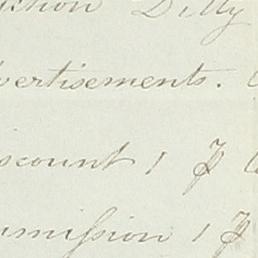 ction Dilly
vertisements.
scount 1 ⅌
mmission 1 ⅌